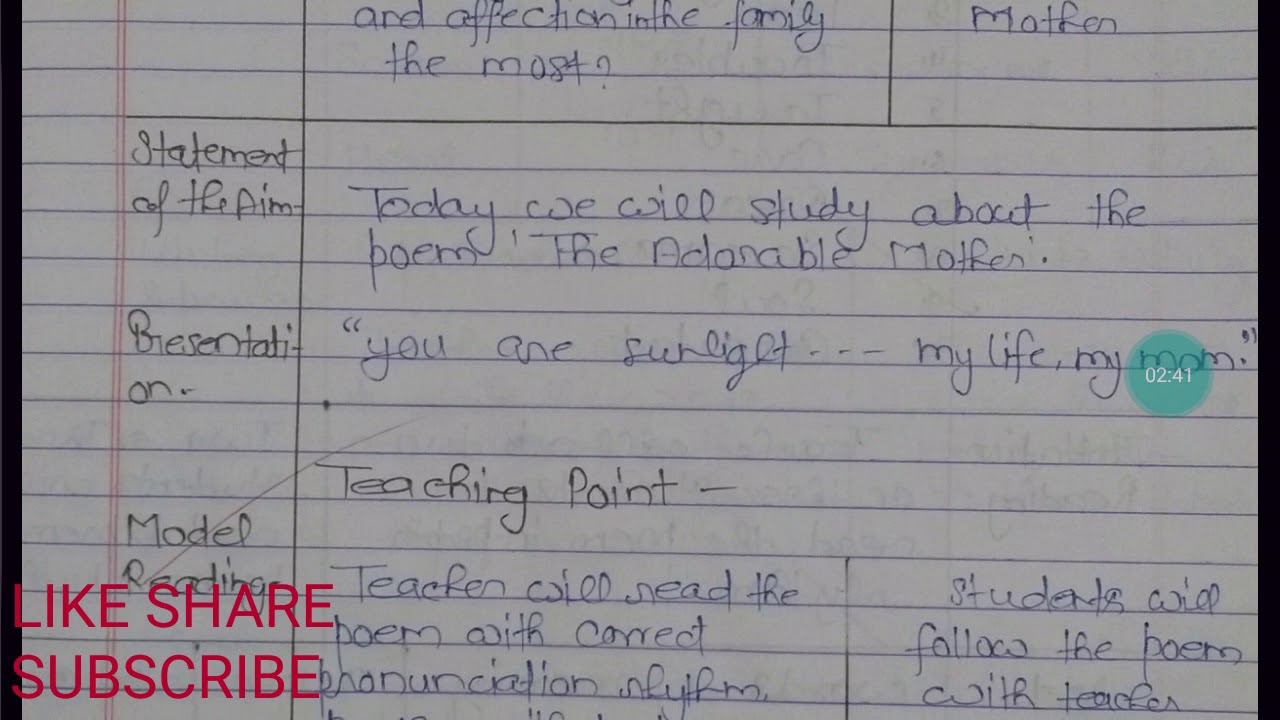 and affection in the family
the most?
Mother
Statement
of the Aim-
Today we will study about the
poem 'The Adorable Mother'.
Presentati-
on.-
"you are sunlight --- my life, my mom."
02:41
Teaching Point -
Model
Reading-
Teacher will read the
poem with correct
phonunciation rhythm
Students will
follow the poem
with teacher
LIKE SHARE
SUBSCRIBE